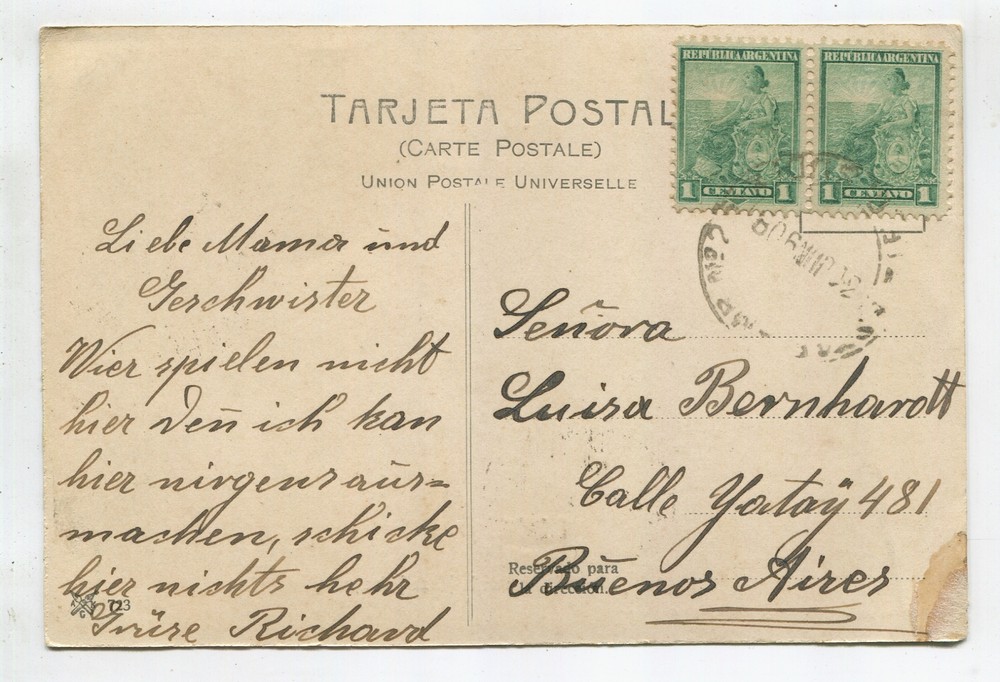 TARJETA POSTAL
(CARTE POSTALE)
UNION POSTALE UNIVERSELLE
REPÚBLICA ARGENTINA
1 CENTAVO 1
REPÚBLICA ARGENTINA
1 CENTAVO 1
Liebe Mama und
Geschwister
Wier spielen nicht
hier den̄ ich kan
hier nirgens aus=
machen, schicke
hier nichts hehr
Grüse Richard
723
Señora
Luisa Bernhardt
Calle Yataÿ 481
Buenos Aires
Reservado para
la dirección.